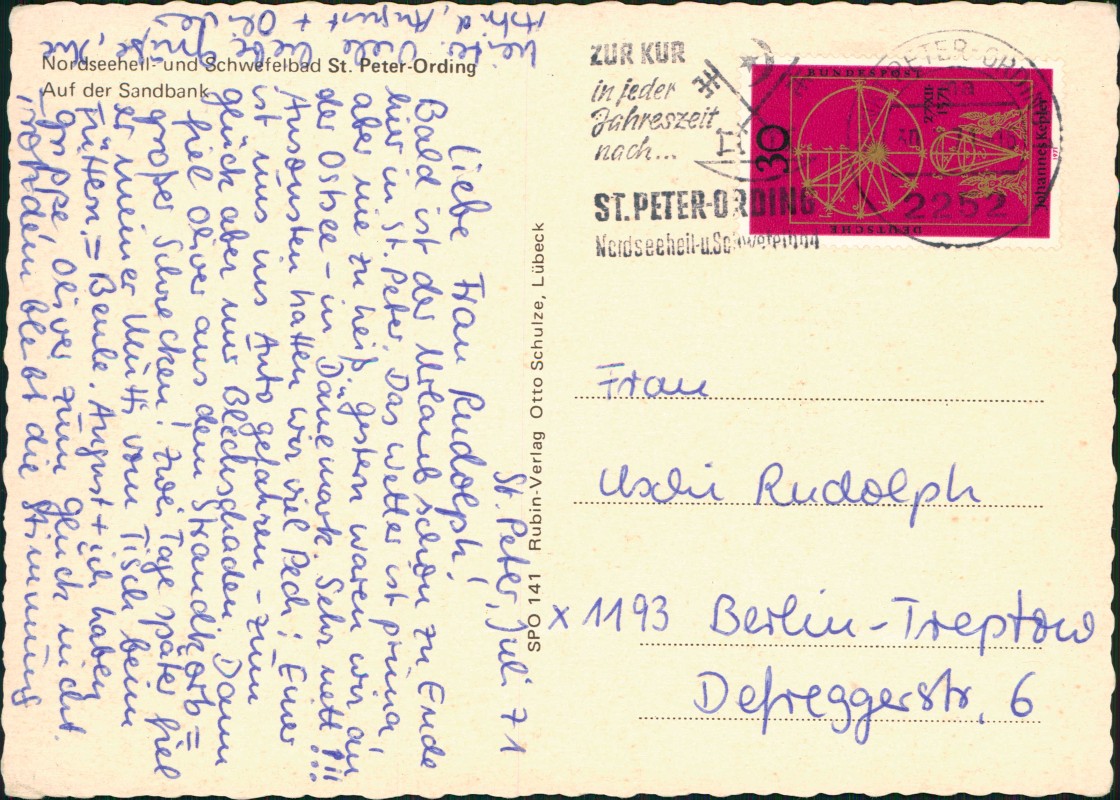 Nordseeheil- und Schwefelbad St. Peter-Ording
Auf der Sandbank
St. Peter, Juli 71
Liebe Frau Rudolph!
Bald ist der Urlaub schon zu Ende
hier in St. Peter. Das Wetter ist prima,
aber nie zu heiß. Gestern waren wir an
der Ostsee - in Dänemark. Sehr nett!!!
Ansonsten hatten wir viel Pech! Einer
ist uns ins Auto gefahren - zum
Glück aber nur Blechschaden. Dann
fiel Oliver aus dem Strandkorb =
großer Schrecken! Zwei Tage später fiel
er meiner Mutti vom Tisch beim
Füttern. = Beule. August + ich haben
Grippe, Oliver zum Glück nicht.
Trotzdem bleibt die Stimmung
heiter. Viele liebe Grüße, Ihre
August + Oli
SPO 141 Rubin-Verlag Otto Schulze, Lübeck
ZUR KUR
in jeder
Jahreszeit
nach...
ST. PETER-ORDING
Nordseeheil-u.Schwefelbad
PETER-ORDING
2252
DEUTSCHE
BUNDESPOST
30
27·XII·
1571
Johannes Kepler
1971
Frau
Uschi Rudolph
x 1193 Berlin-Treptow
Defreggerstr. 6